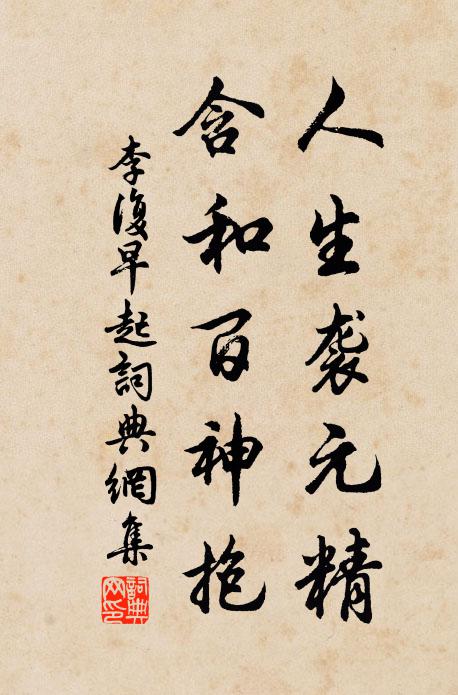 人生袭元精
含和百神抱
李復早起詞典網集
詞典網印